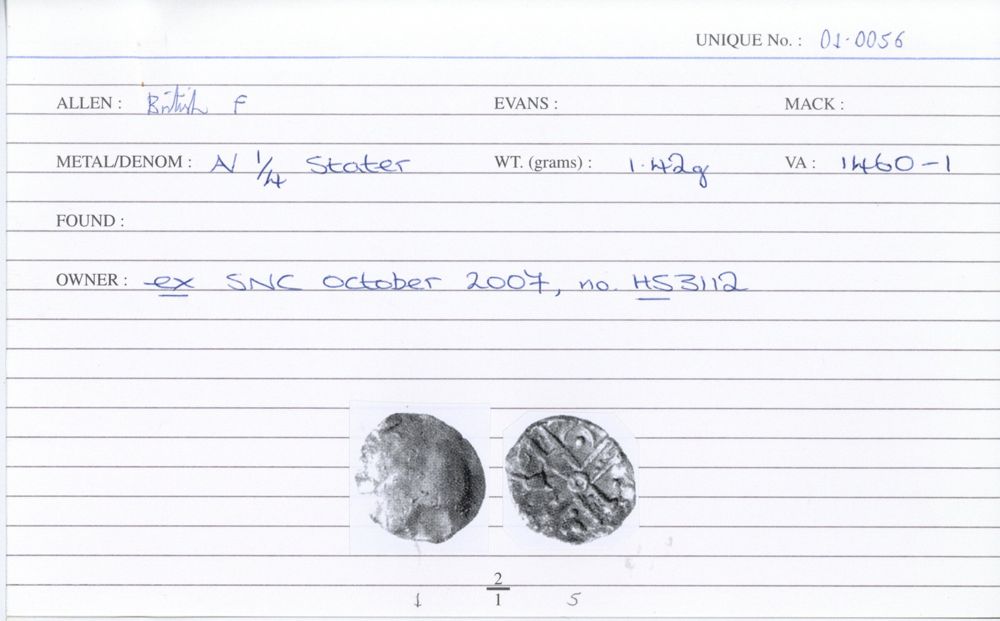 UNIQUE No. : 01-0056
ALLEN : British F EVANS : MACK :
METAL/DENOM : AV 1/4 Stater WT. (grams) : 1.42g VA : 1460-1
FOUND :
OWNER : ex SNC October 2007, no. HS3112
2
1 1 5